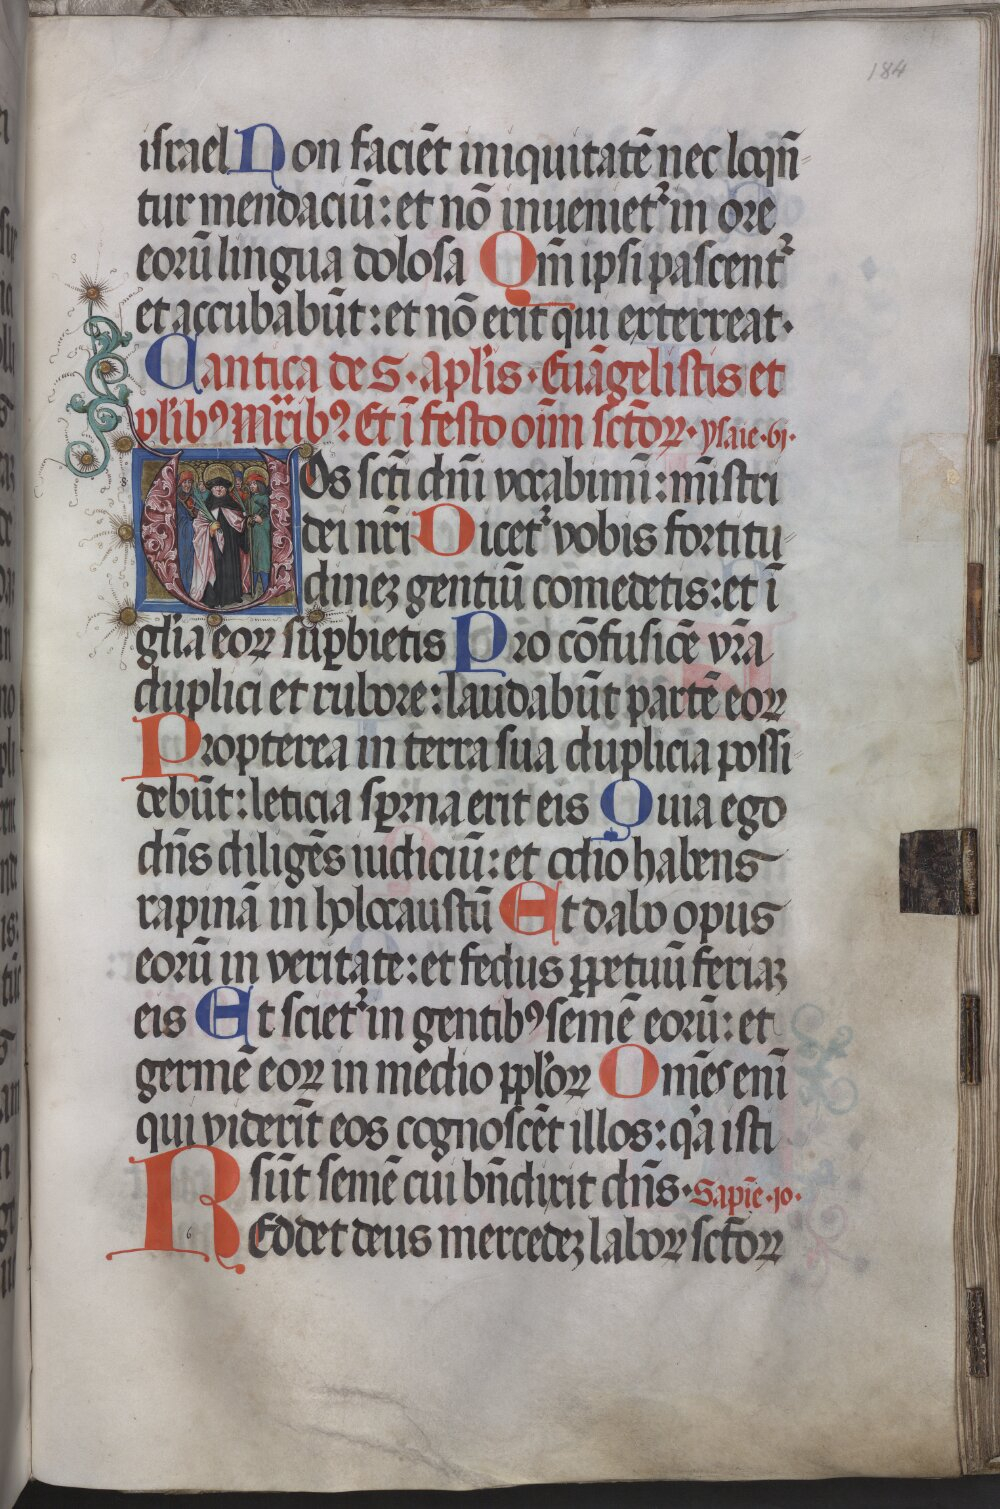 184
israel Non faciēt iniquitatē nec loqn̄
tur mendaciū: et nō inueniet᷑ in ore
eorū lingua dolosa Qm̄ ipsi pascent᷑
et accubabūt: et nō erit qui exterreat·
Cantica de S· apl'is· Euāgelistis et
pl'ibꝰ Mr̄ribꝰ Et ī festo oīm sctōꝝ· ysaie·61·
Vos scti dn̄i vocabimī: mīstri
dei nr̄i Dicet᷑ vobis fortitu
dineꝫ gentiū comedetis: et ī
gl'ia eoꝝ suꝑbietis Pro cōfusiōe vr̄a
duplici et rubore: laudabūt partē eoꝝ
Propterea in terra sua duplicia possi
debūt: leticia sp̄rna erit eis Quia ego
dn̄s diligēs iudiciū: et odio habens
rapinā in holocaustū Et dabo opus
eorū in veritate: et fedus ꝑpetuū feriaꝫ
eis Et sciet᷑ in gentibꝰ semē eorū: et
germē eoꝝ in medio ppl'oꝝ Omēs enī
qui viderīt eos cognoscēt illos: q'a isti
sūt semē cui bn̄dixit dn̄s· Sapīe·10·
Reddet deus mercedeꝫ laboꝝ sctōꝝ